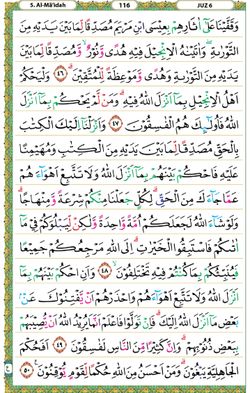 5. Al-Mâ'idah 116 JUZ 6
وَقَفَّيْنَا عَلَىٰ آثَارِهِمْ بِعِيسَى ابْنِ مَرْيَمَ مُصَدِّقًا لِمَا بَيْنَ يَدَيْهِ مِنَ
التَّوْرَىٰةِ وَآتَيْنَٰهُ الْإِنْجِيلَ فِيهِ هُدًى وَنُورٌ وَمُصَدِّقًا لِمَا بَيْنَ
يَدَيْهِ مِنَ التَّوْرَىٰةِ وَهُدًى وَمَوْعِظَةً لِلْمُتَّقِينَ ٤٦ وَلْيَحْكُمْ
أَهْلُ الْإِنْجِيلِ بِمَا أَنْزَلَ اللَّهُ فِيهِ وَمَنْ لَمْ يَحْكُمْ بِمَا أَنْزَلَ
اللَّهُ فَأُولَٰئِكَ هُمُ الْفَٰسِقُونَ ٤٧ وَأَنْزَلْنَا إِلَيْكَ الْكِتَٰبَ
بِالْحَقِّ مُصَدِّقًا لِمَا بَيْنَ يَدَيْهِ مِنَ الْكِتَٰبِ وَمُهَيْمِنًا
عَلَيْهِ فَاحْكُمْ بَيْنَهُمْ بِمَا أَنْزَلَ اللَّهُ وَلَا تَتَّبِعْ أَهْوَآءَهُمْ
عَمَّا جَآءَكَ مِنَ الْحَقِّ لِكُلٍّ جَعَلْنَا مِنْكُمْ شِرْعَةً وَمِنْهَاجًا
وَلَوْ شَآءَ اللَّهُ لَجَعَلَكُمْ أُمَّةً وَٰحِدَةً وَلَٰكِنْ لِيَبْلُوَكُمْ فِي مَآ
آتَىٰكُمْ فَاسْتَبِقُوا الْخَيْرَٰتِ إِلَى اللَّهِ مَرْجِعُكُمْ جَمِيعًا
فَيُنَبِّئُكُمْ بِمَا كُنْتُمْ فِيهِ تَخْتَلِفُونَ ٤٨ وَأَنِ احْكُمْ بَيْنَهُمْ بِمَآ
أَنْزَلَ اللَّهُ وَلَا تَتَّبِعْ أَهْوَآءَهُمْ وَاحْذَرْهُمْ أَنْ يَفْتِنُوكَ عَنْ
بَعْضِ مَآ أَنْزَلَ اللَّهُ إِلَيْكَ فَإِنْ تَوَلَّوْا فَاعْلَمْ أَنَّمَا يُرِيدُ اللَّهُ أَنْ يُصِيبَهُمْ
بِبَعْضِ ذُنُوبِهِمْ وَإِنَّ كَثِيرًا مِنَ النَّاسِ لَفَٰسِقُونَ ٤٩ أَفَحُكْمَ
الْجَاهِلِيَّةِ يَبْغُونَ وَمَنْ أَحْسَنُ مِنَ اللَّهِ حُكْمًا لِقَوْمٍ يُوقِنُونَ ٥٠